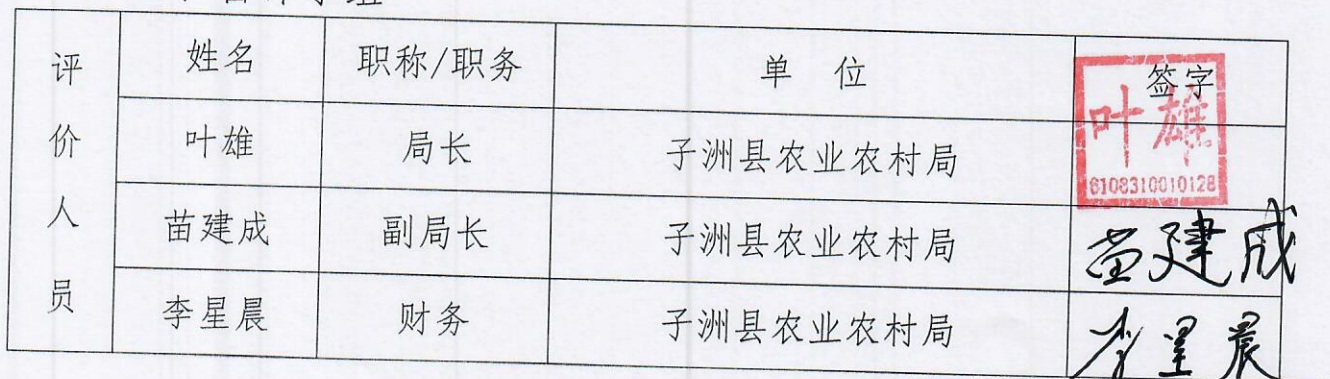 评价人员 姓名 职称/职务 单 位 签字
叶雄 局长 子洲县农业农村局 叶雄
6108310010128
苗建成 副局长 子洲县农业农村局 苗建成
李星晨 财务 子洲县农业农村局 李星晨